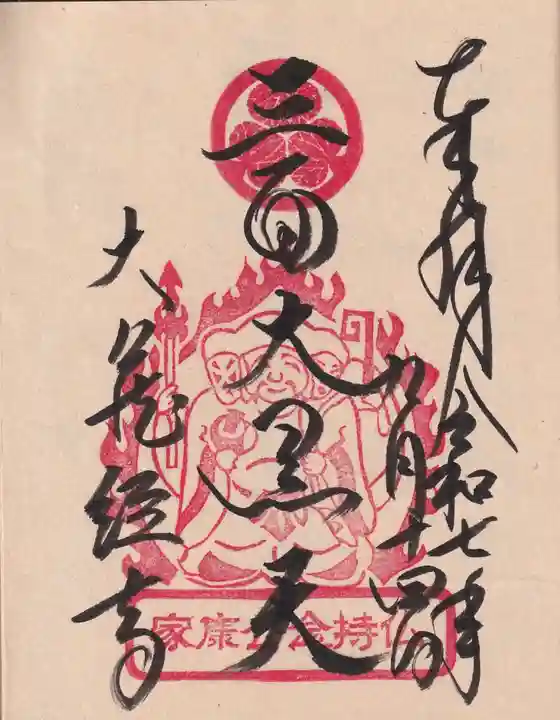 奉拝
令和七年
九月十四日
三面大黒天
家康公念持仏